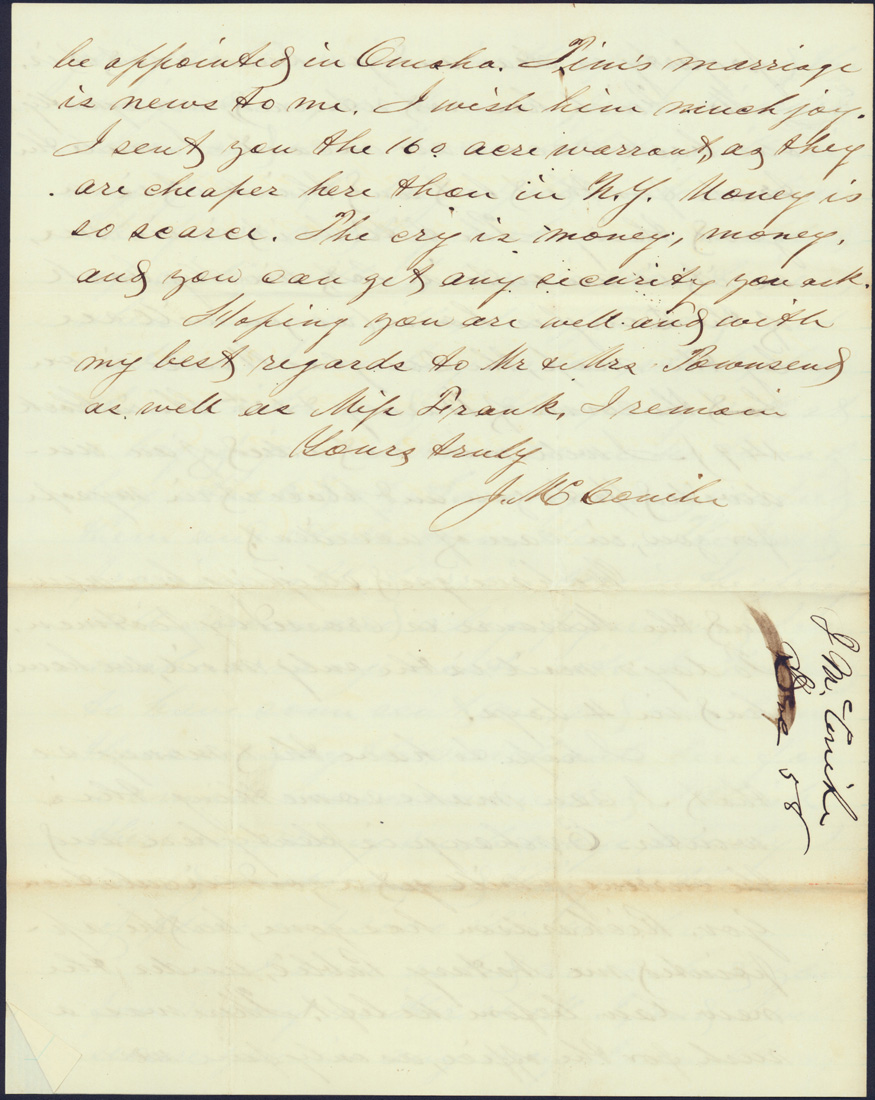 be appointed in Omaha. Tim's marriage
is news to me. I wish him much joy.
I sent you the 160 acre warrant, as they
are cheaper here than in N.Y. Money is
so scarce. The cry is money, money,
and you can get any security you ask.
Hoping you are well and with
my best regards to Mr & Mrs Townsend
as well as Miss Frank, I remain
Yours truly
J. McConihe
J McConihe
58